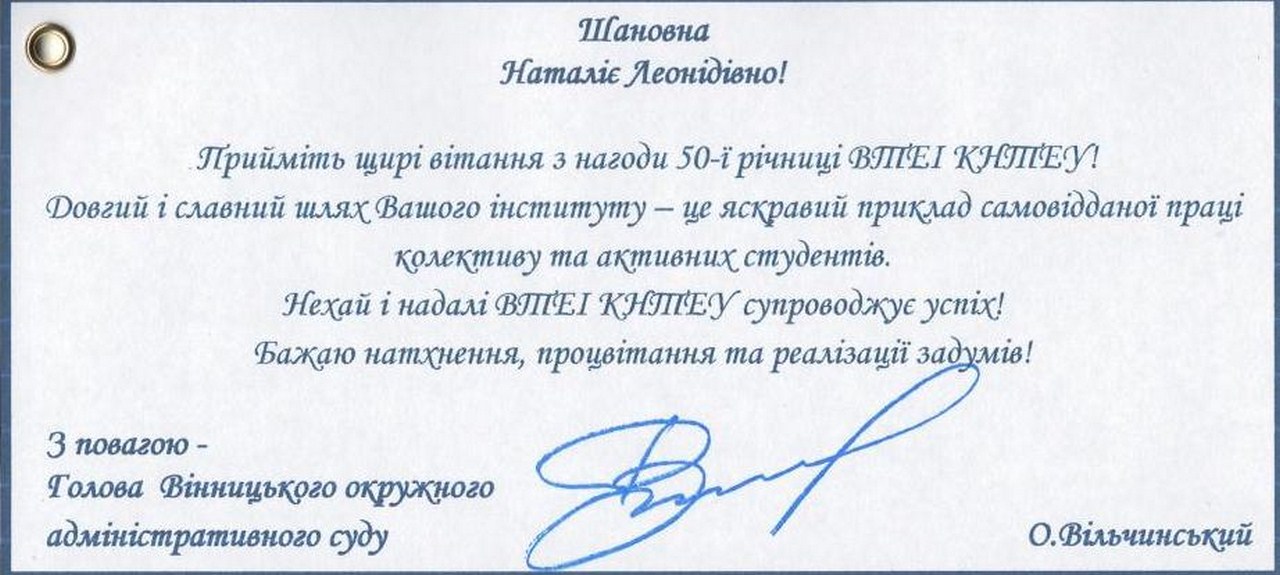 Шановна
Наталіє Леонідівно!
Прийміть щирі вітання з нагоди 50-ї річниці ВТЕІ КНТЕУ!
Довгий і славний шлях Вашого інституту – це яскравий приклад самовідданої праці
колективу та активних студентів.
Нехай і надалі ВТЕІ КНТЕУ супроводжує успіх!
Бажаю натхнення, процвітання та реалізації задумів!
З повагою -
Голова Вінницького окружного
адміністративного суду
О.Вільчинський